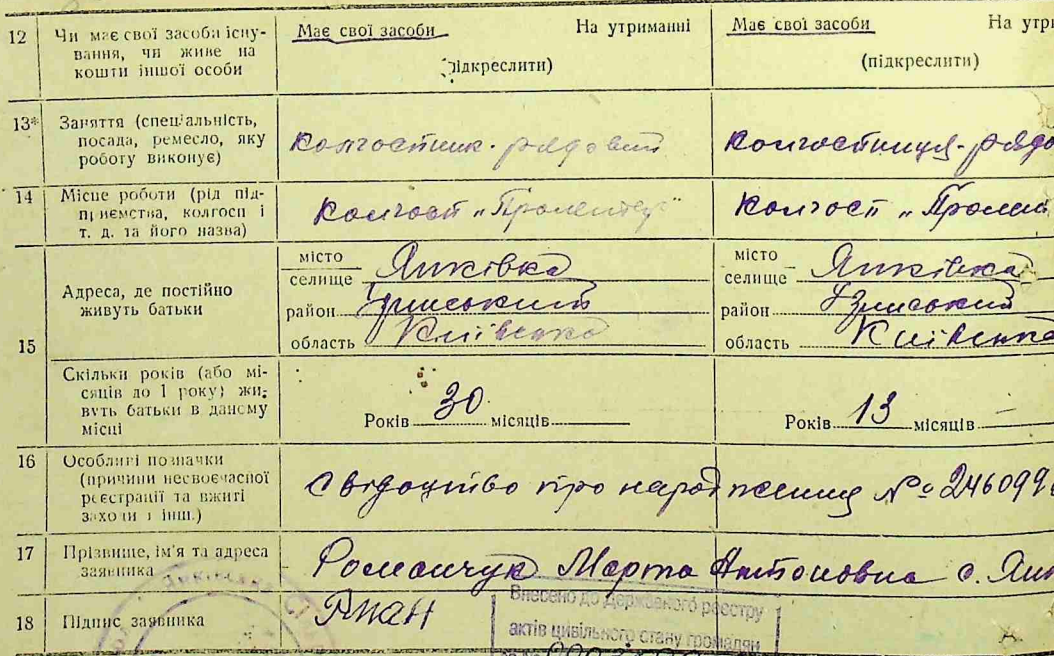 12 Чи має свої засоби існу- Має свої засоби На утриманні Має свої засоби На утри
вання, чи живе на
кошти іншої особи (підкреслити) (підкреслити)
13* Заняття (спеціальність,
посада, ремесло, яку колгоспник-рядовий колгоспниця-рядо
роботу виконує)
14 Місце роботи (рід під-
приємства, колгосп і колгосп „Пролетар" колгосп „Пролет
т. д. та його назва)
15 Адреса, де постійно
живуть батьки
місто
селище Янківка
район
область Київська
місто
селище Янківка
район
область Київська
Скільки років (або мі-
сяців до 1 року) жи-
вуть батьки в даному
місці Років 30 місяців Років 13 місяців —
16 Особливі позначки
(причини несвоєчасної
реєстрації та вжиті
заходи і інш.)
свідоцтво про народження № 246099
17 Прізвище, ім'я та адреса
заявника Романчук Марта Антоновна с. Янк
18 Підпис заявника
Внесено до Державного реєстру
актів цивільного стану громадян